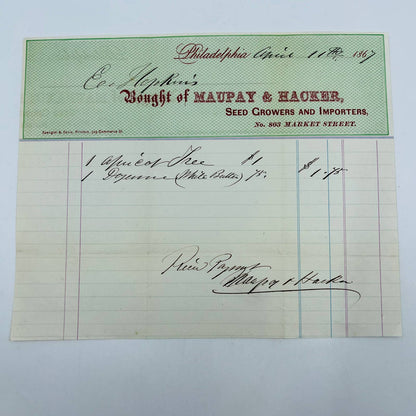 Philadelphia April 11th 1867
E. Hopkins
Bought of MAUPAY & HACKER,
SEED GROWERS AND IMPORTERS,
No. 803 MARKET STREET.
Spangler & Davis, Printers, 529 Commerce St.
1 Apricot Tree $1
1 Doyenne (White Butter) 75. $1.75
Payment
Maupay & Hacker